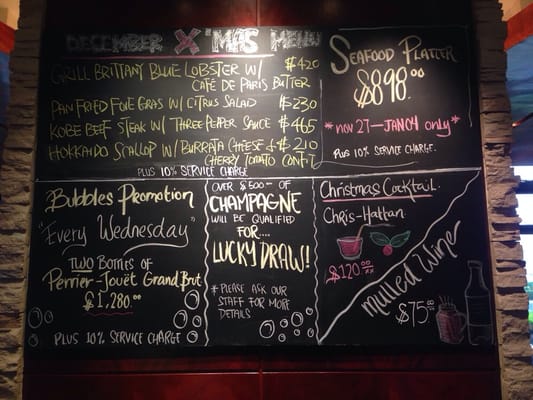 DECEMBER X'MAS MENU
GRILL BRITTANY BLUE LOBSTER W/ $420
CAFÉ DE PARIS BUTTER
PAN FRIED FOIE GRAS W/ CITRUS SALAD $230
KOBE BEEF STEAK W/ THREE PEPPER SAUCE $465
HOKKAIDO SCALLOP W/ BURRATA CHEESE & $210
CHERRY TOMATO CONFIT
PLUS 10% SERVICE CHARGE
SEAFOOD PLATTER
$898.00
*NOV 27-JAN04 only*
PLUS 10% SERVICE CHARGE.
Bubbles Promotion
"Every Wednesday"
TWO BOTTLES OF
Perrier-Jouët Grand Brut
$1,280.00
PLUS 10% SERVICE CHARGE
OVER $500- OF
CHAMPAGNE
WILL BE QUALIFIED
FOR....
LUCKY DRAW!
*PLEASE ASK OUR
STAFF FOR MORE
DETAILS
Christmas Cocktail.
Chris-Hattan
$120.00
Mulled Wine
$75.00